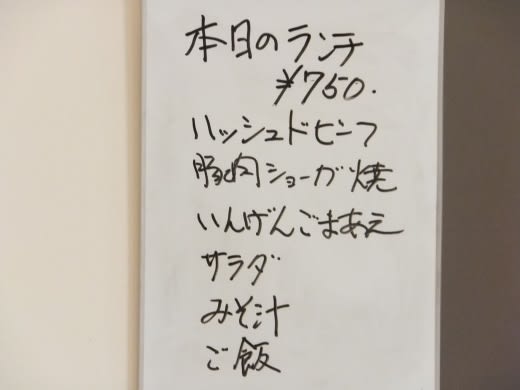 本日のランチ
¥750.
ハッシュドビーフ
豚肉ショーガ焼
いんげんごまあえ
サラダ
みそ汁
ご飯